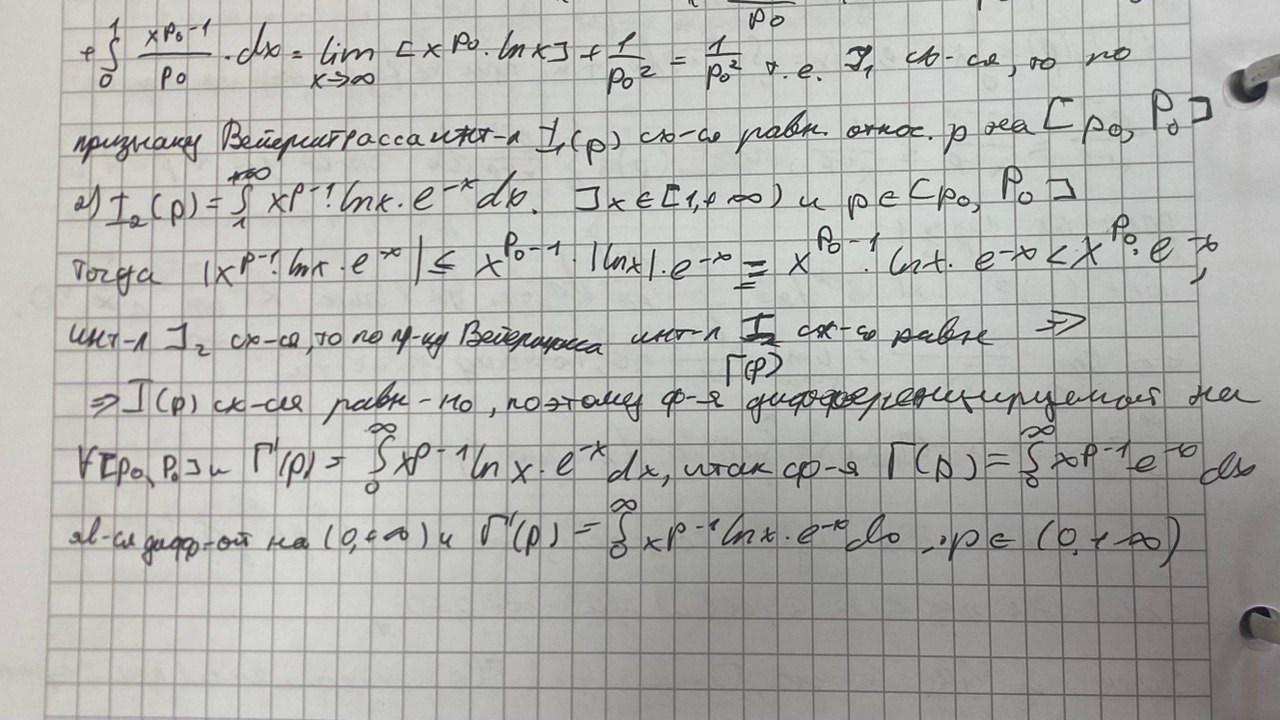 p₀
+ ∫₀¹ x^{p₀-1}/p₀ · dx = lim_{x→∞} [x^{p₀} · ln x] + 1/p₀² = 1/p₀² т.е. I₁ сх-ся, то по
признаку Вейерштрасса инт-л I₁(p) сх-ся равн. относ. p на [p₀, P₀]
2) I₂(p) = ∫₁^{+∞} x^{p-1} · ln x · e^{-x} dx. ] x ∈ [1,+∞) и p ∈ [p₀, P₀]
Тогда |x^{p-1} · ln x · e^{-x}| ≤ x^{P₀-1} · |ln x| · e^{-x} = x^{P₀-1} · ln x · e^{-x} < x^{P₀} · e^{-x},
инт-л I₂ сх-ся, то по пр-ку Вейерштрасса инт-л I₂ сх-ся равн ⇒
Γ(p)
⇒ I(p) сх-ся равн-но, поэтому ф-я дифференцируемой на
∀[p₀, P₀] и Γ'(p) = ∫₀^∞ x^{p-1} ln x · e^{-x} dx, итак ф-я Γ(p) = ∫₀^∞ x^{p-1} e^{-x} dx
яв-ся дифф-ой на (0,+∞) и Γ'(p) = ∫₀^∞ x^{p-1} ln x · e^{-x} dx, p ∈ (0,+∞)